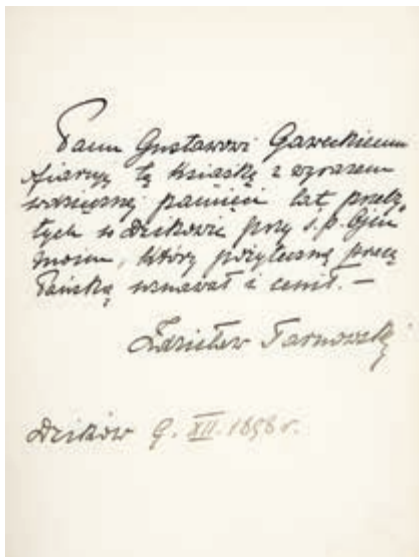 Panu Gustawowi Gaweckiemu
ofiaruję tę książkę z wyrazem
wdzięcznej pamięci lat przeży-
tych w Dzikowie przy ś. p. Ojcu
moim, który pożyteczną pracę
Pańską uznawał i cenił. —
Zdzisław Tarnowski
Dzików 9. XII. 1898 r.